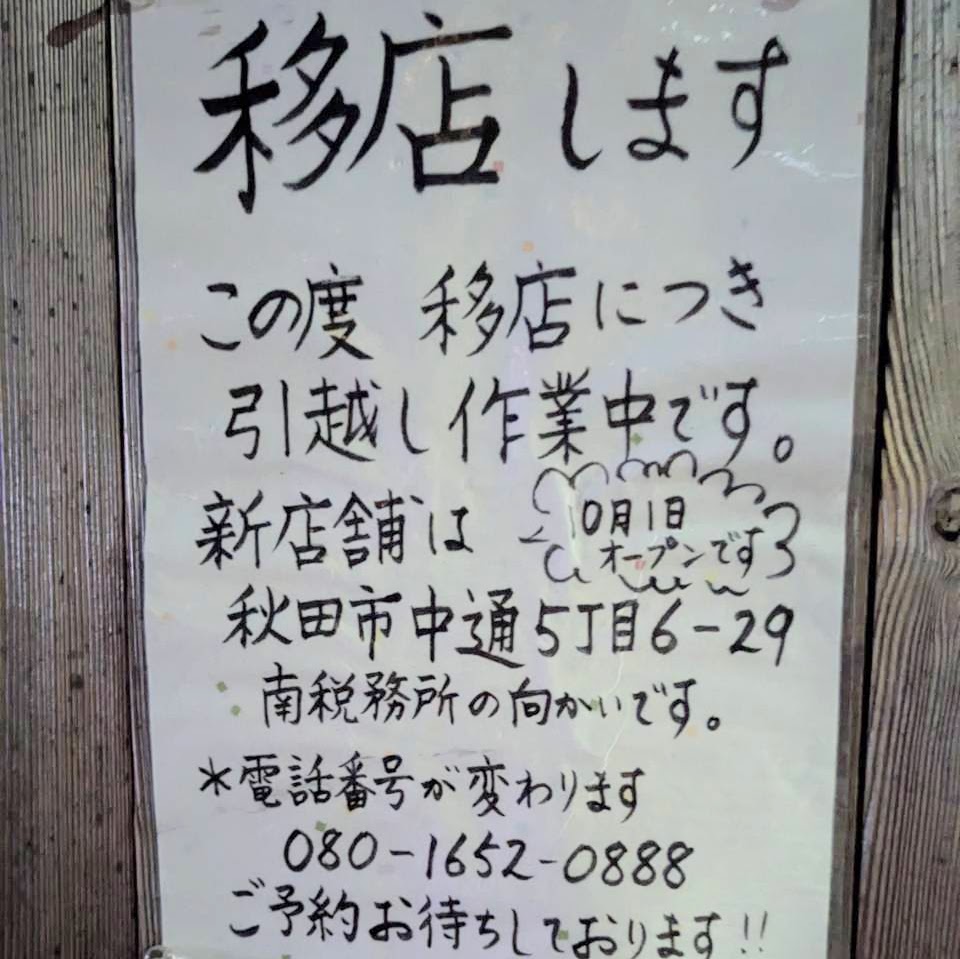 移店します
この度 移店につき
引越し作業中です。
新店舗は
10月1日
オープンです
秋田市中通5丁目6-29
南税務所の向かいです。
*電話番号が変わります
080-1652-0888
ご予約お待ちしております!!